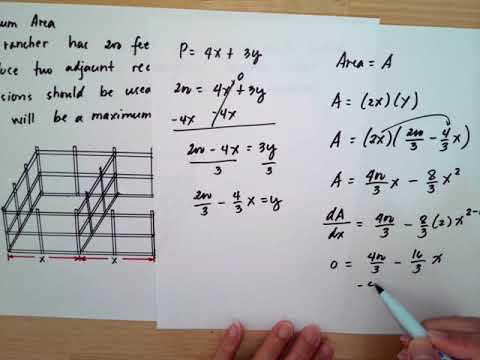 um Area
rancher has 200 fee
two adjacent rec
sions should be used
will be a maximum
x
x
P = 4x + 3y
0
200 = 4x + 3y
-4x -4x
200 - 4x = 3y
3 3
200/3 - 4/3 x = y
Area = A
A = (2x)(y)
A = (2x)(200/3 - 4/3 x)
A = 400/3 x - 8/3 x²
dA/dx = 400/3 - 8/3 (2) x²⁻
0 = 400/3 - 16/3 x